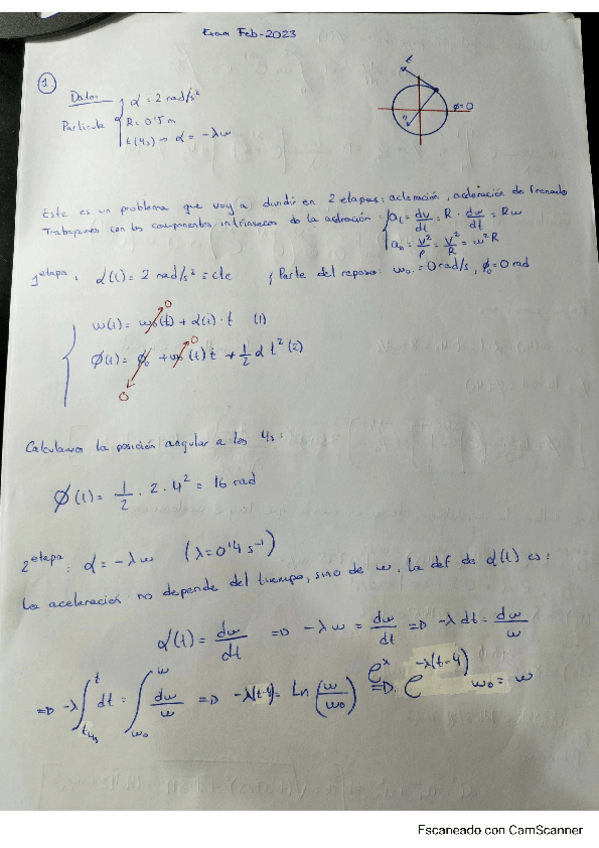 Exam Feb-2023
1.
Datos α = 2 rad/s²
Partícula R = 0'5 m
t(4s) → α = -λω
t
φ=0
Este es un problema que voy a dividir en 2 etapas: acleración, acleración de frenado
Trabajamos con las componentes intrínsecas de la aclración. a_t = dv/dt = R · dω/dt = Rω
a_n = v²/ρ = v²/R = ω²R
1ª etapa: α(t) = 2 rad/s² = cte ; Parte del reposo: ω₀ = 0 rad/s, φ₀ = 0 rad
ω(t) = ω₀(t) + α(t) · t (1)
0
φ(t) = φ₀ + ω₀(t) t + 1/2 α t² (2)
0
0
Calculamos la posición angular a los 4s:
φ(t) = 1/2 · 2 · 4² = 16 rad
2ª etapa: α = -λω (λ = 0'4 s⁻¹)
La aceleración no depende del tiempo, sino de ω. La def de α(t) es:
α(t) = dω/dt => -λω = dω/dt => -λ dt = dω/ω
=> -λ ∫ dt = ∫ dω/ω => -λ(t-4) = Ln(ω/ω₀) => e^(-λ(t-4)) ω₀ = ω
e^x
Escaneado con CamScanner